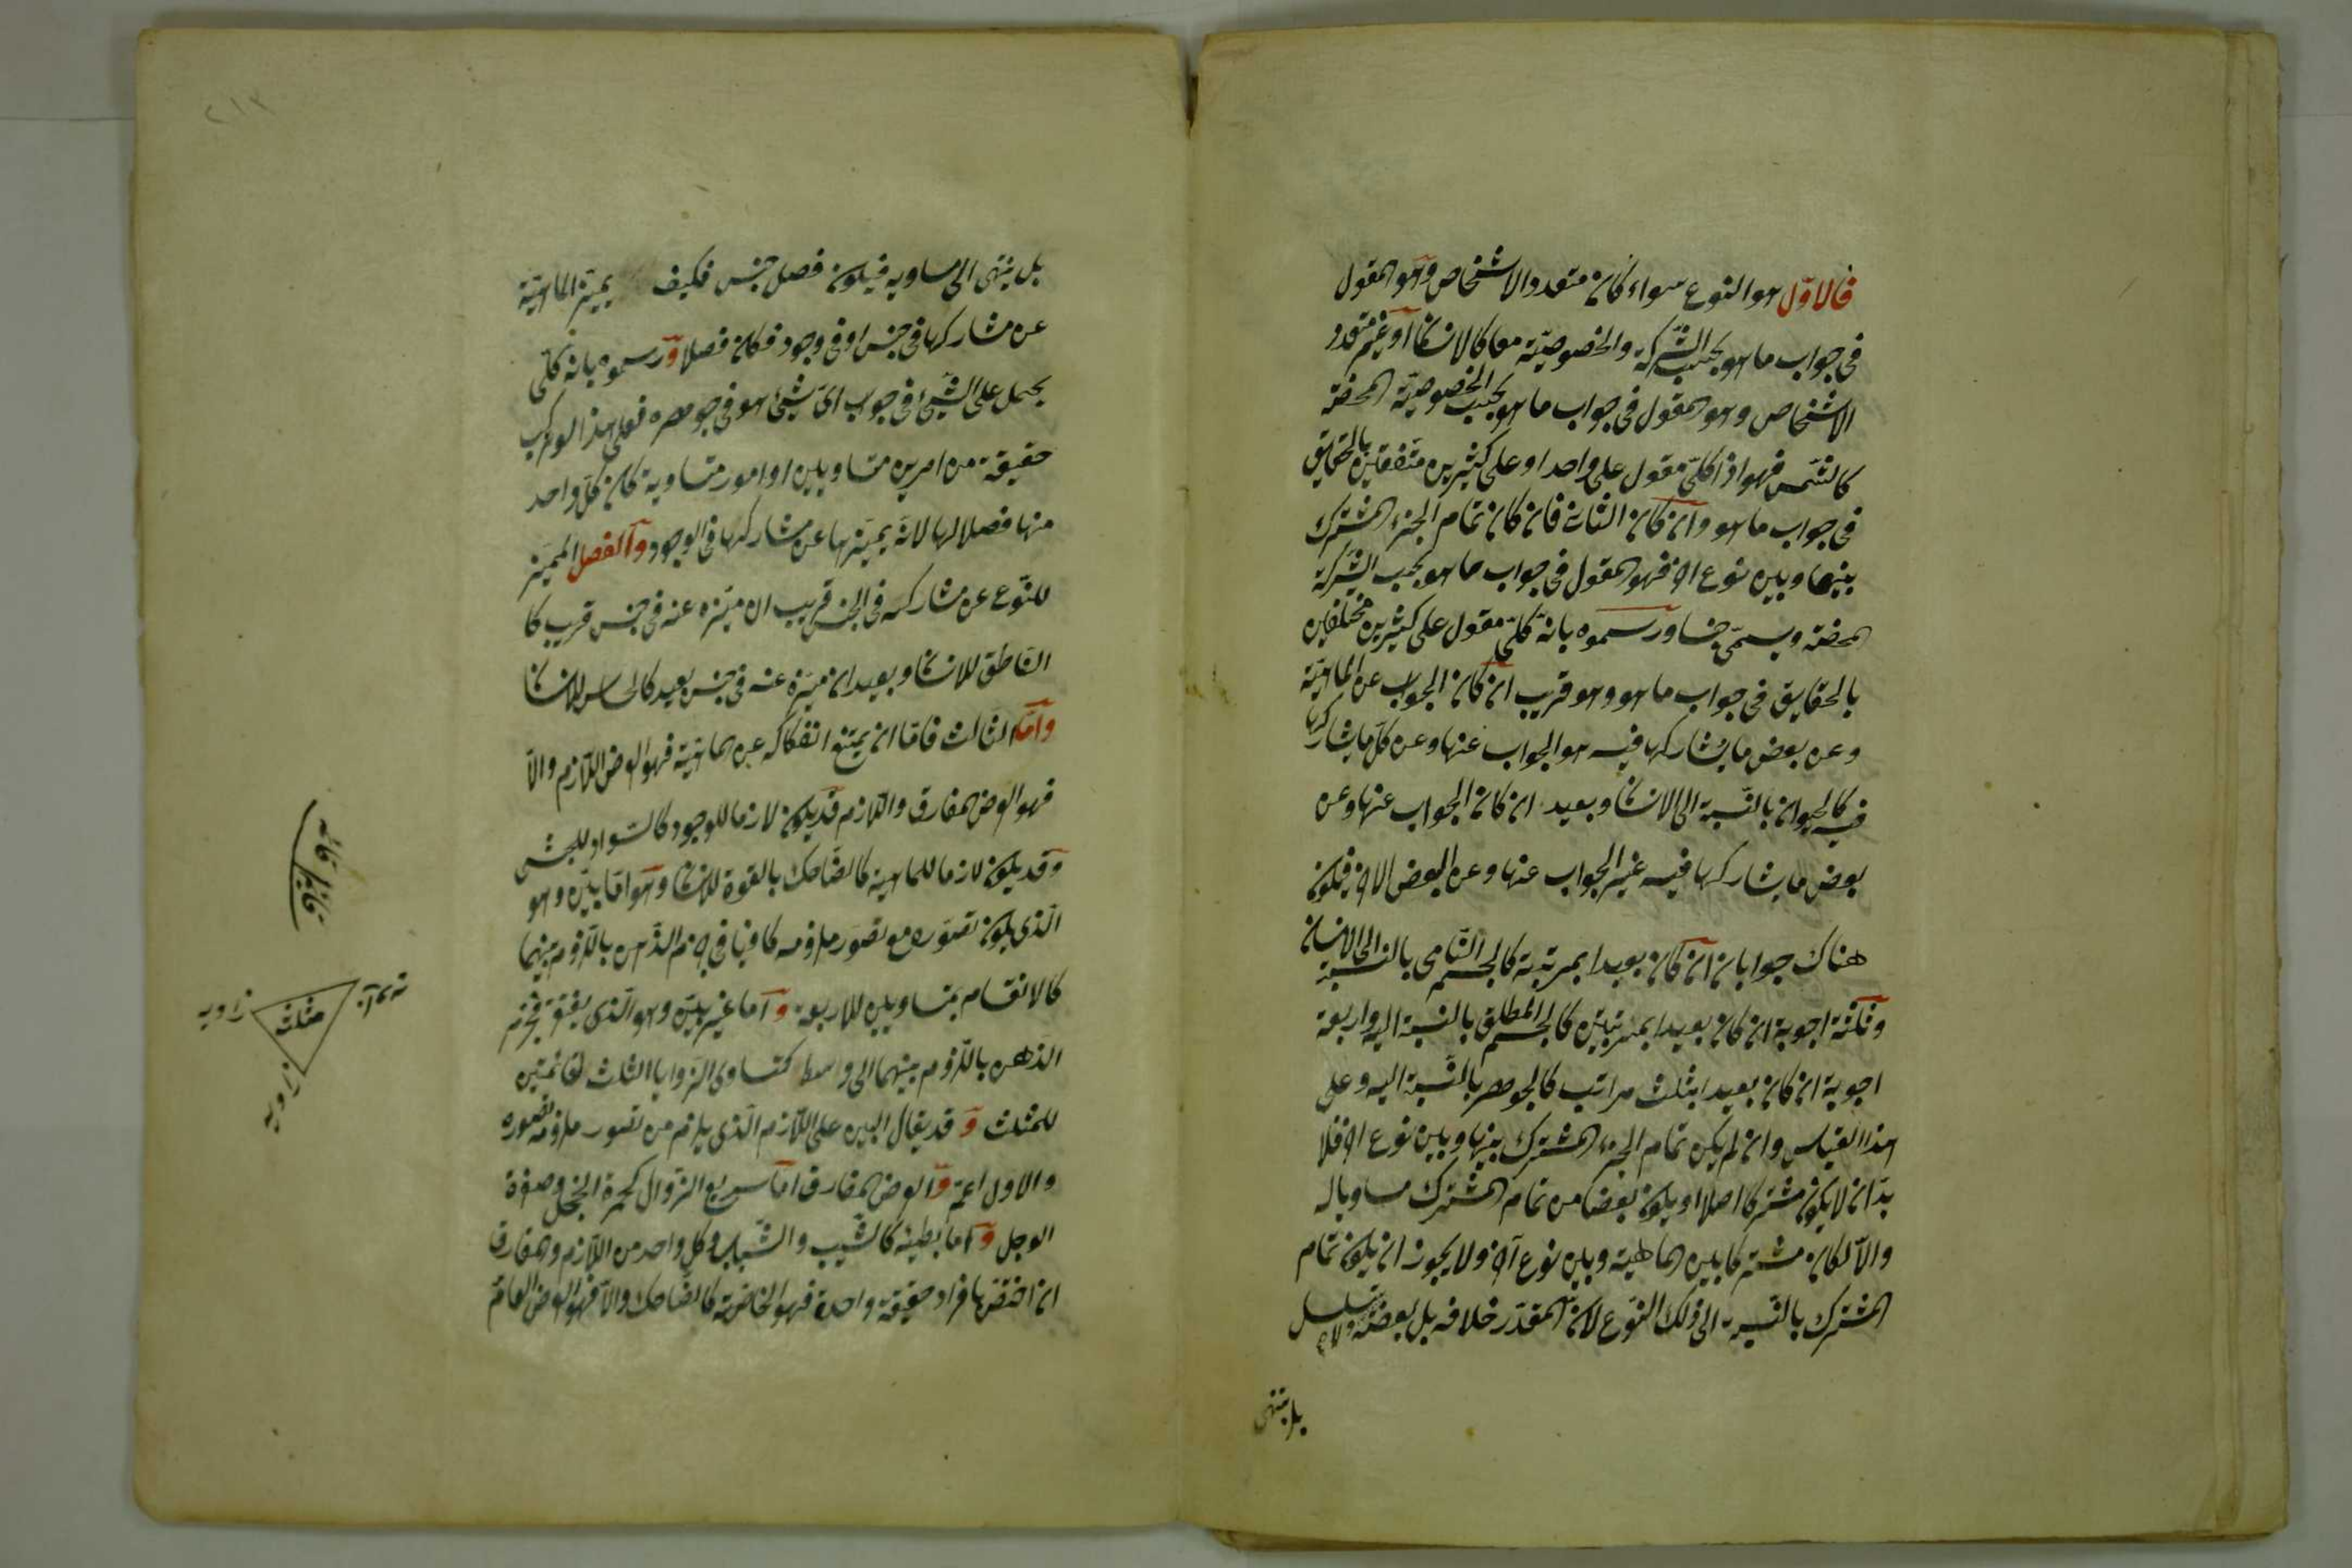 فالاوّل هو النوع سواء كان متعدد الاشخاص وهو المقول
فى جواب ما هو بحسب الشركة والخصوصيّة معا كالانسان او غير متعدد
الاشخاص وهو المقول فى جواب ما هو بحسب الخصوصيّة المحضة
كالشمس فهو اذا كلىّ مقول على واحد او على كثيرين متفقين بالحقايق
فى جواب ما هو وان كان الثانى فان كان تمام الجزء المشترك
بينها وبين نوع اخر فهو المقول فى جواب ما هو بحسب الشركة
المحضة ويسمّى جنسا ورسموه بانه كلىّ مقول على كثيرين مختلفين
بالحقايق فى جواب ما هو وهو قريب ان كان الجواب عن الماهيّة
وعن بعض ما يشاركها فيه هو الجواب عنها وعن كلّ ما يشاركها
فيه كالحيوان بالنسبة الى الانسان وبعيد ان كان الجواب عنها وعن
بعض ما يشاركها فيه غير الجواب عنها وعن البعض الاخر فيكون
هناك جوابان ان كان بعيدا بمرتبة كالجسم النّامى بالنسبة الى الانسان
وثلثة اجوبة ان كان بعيدا بمرتبتين كالجسم المطلق بالنسبة اليه واربعة
اجوبة ان كان بعيدا بثلث مراتب كالجوهر بالنسبة اليه وعلى
هذا القياس وان لم يكن تمام الجزء المشترك بينها وبين نوع اخر فلا
بدّ ان لا يكون مشتركا اصلا او يكون بعضا من تمام المشترك مساويا له
والاّ لكان مشتركا بين الماهية وبين نوع آخر ولا يجوز ان يكون تمام
المشترك بالنسبة الى ذلك النوع لانّ المقدّر خلافه بل بعضه ولا يتسلسل
بل ينتهى
بل ينتهى الى مساويه فيكون فصل جنس فكيف يميّز الماهيّة
عن مشاركها فى جنس او فى وجود فكان فصلا ورسموه بانه كلّى
يحمل على الشئ فى جواب اىّ شئ هو فى جوهره فعلى هذا لو تركب
حقيقة من امرين متساويين او امور متساوية كان كلّ واحد
منها فصلا لها لانّه يميّزها عن مشاركها فى الوجود والفصل المميّز
للنّوع عن مشاركه فى الجنس قريب ان ميّزه عنه فى جنس قريب كا
الناطق للانسان وبعيد ان ميّزه عنه فى جنس بعيد كالحسّاس للانسان
وامّا الثالث فامّا ان يمتنع انفكاكه عن الماهيّة فهو العرض اللازم والاّ
فهو العرض المفارق واللازم قد يكون لازما للوجود كالسّواد للحبشى
وقد يكون لازما للماهية كالضّاحك بالقوة للانسان وهو امّا بيّن وهو
الّذى يكون تصوّره مع تصوّر ملزومه كافيا فى جزم الذّهن باللّزوم بينهما
كالانقسام بمتساويين للاربعة وامّا غير بيّن وهو الّذى يفتقر فى جزم
الذهن باللّزوم بينهما الى واسط كتساوى الزوايا الثلث لقائمتين
للمثلث وقد يقال البيّن على اللاّزم الّذى يلزم من تصور ملزومه تصوره
والاول اعمّ والعرض المفارق امّا سريع الزوال كحمرة الخجل وصفرة
الوجل وامّا بطيئه كالشّيب والشّباب وكل واحد من اللازم والمفارق
ان اختصّ بافراد حقيقة واحدة فهو الخاصّة كالضاحك والاّ فهو العرض العامّ
مثلث
زاويه
زاويه